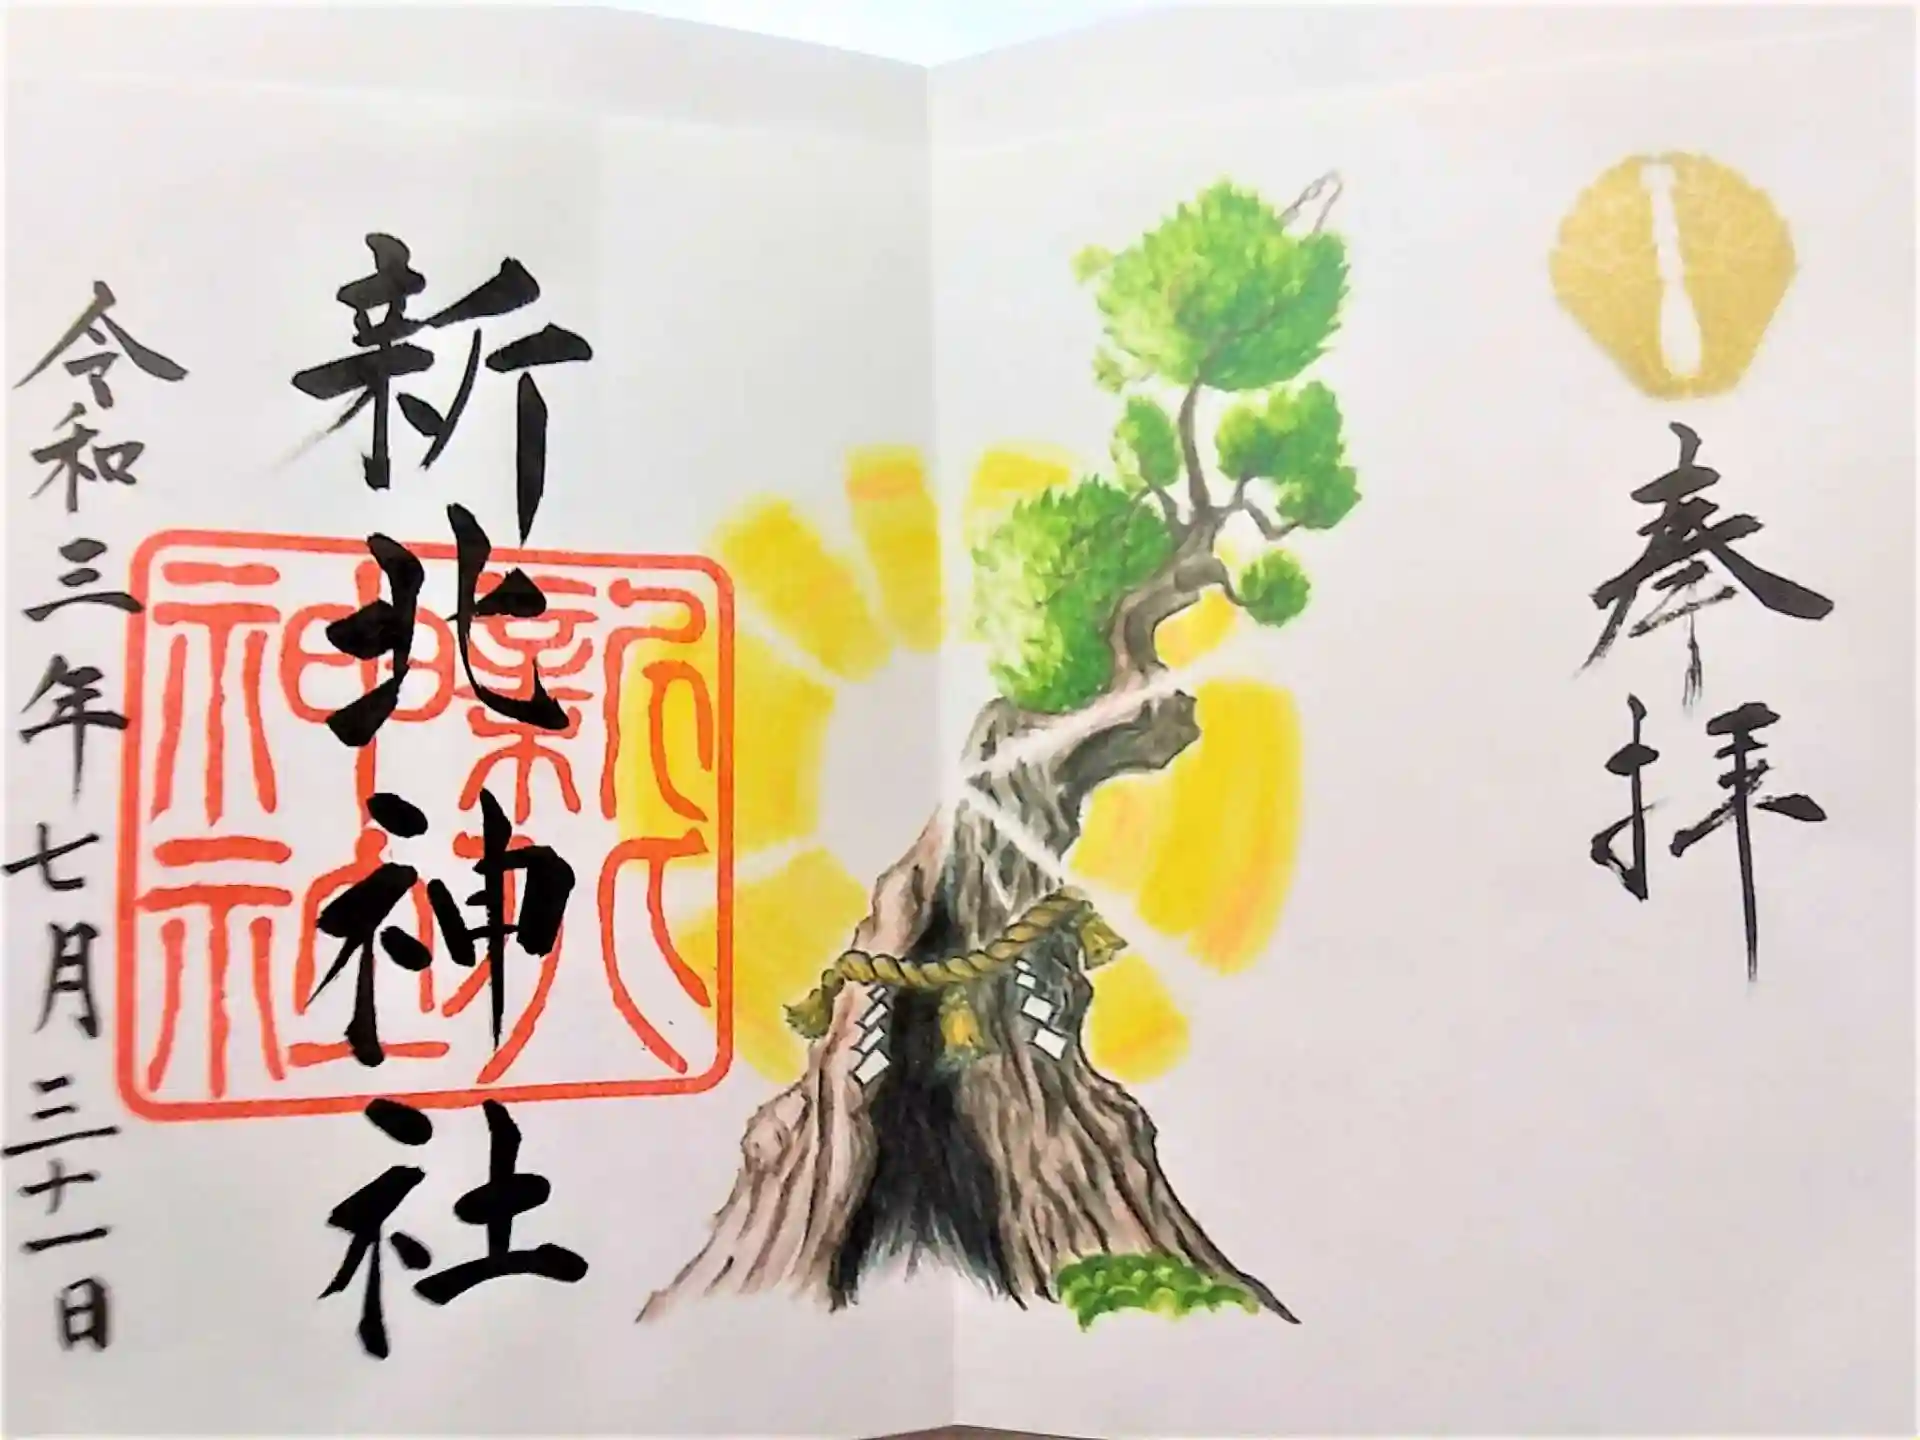 奉拝
新北神社
新北神社
令和三年七月三十一日